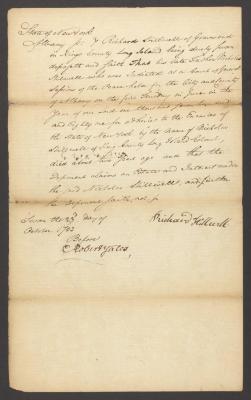 State of New York
Albany ss. Richard Stillwell of Gravesend
in Kings County Long Island being duly sworn
deposeth and saith That his late Father Nicholas
Stillwell who was indicted at a Court of General
Sessions of the Peace held for the City and County
of Albany on the first Tuesday in June in the
Year of our Lord one thousand seven hundred
and Eighty one for adhering to the Enemies of
the State of New York by the Name of Nicholas
Stillwell of Kings County Long Island
died about two Years ago and that the
Deponent claims an Estate and Interest under
the said Nicholas Stillwell, and further
the deponent saith not
Sworn the 23d Day of
October 1783
Before
Robert Yates
Richard Stillwell